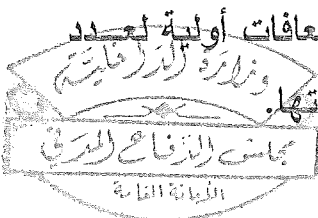 عافات أولية لعدد
وزارة الداخلية
تها.
مجلس الدفاع المدني
الأمانة العامة